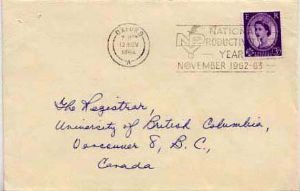 OXFORD
12 NOV
1962
NATIONAL
PRODUCTIVITY
YEAR
NOVEMBER 1962-63
The Registrar,
University of British Columbia,
Vancouver 8, B.C.,
Canada